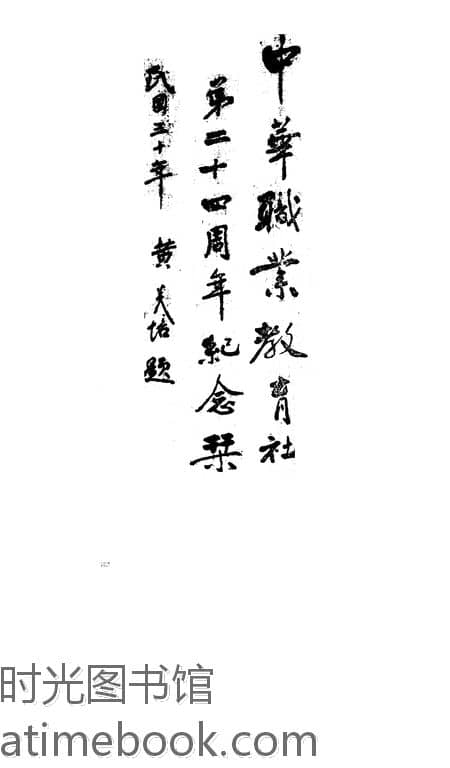 中華職業教育社
第二十四周年紀念栞
民國三十年 黄炎培題
时光图书馆
atimebook.com